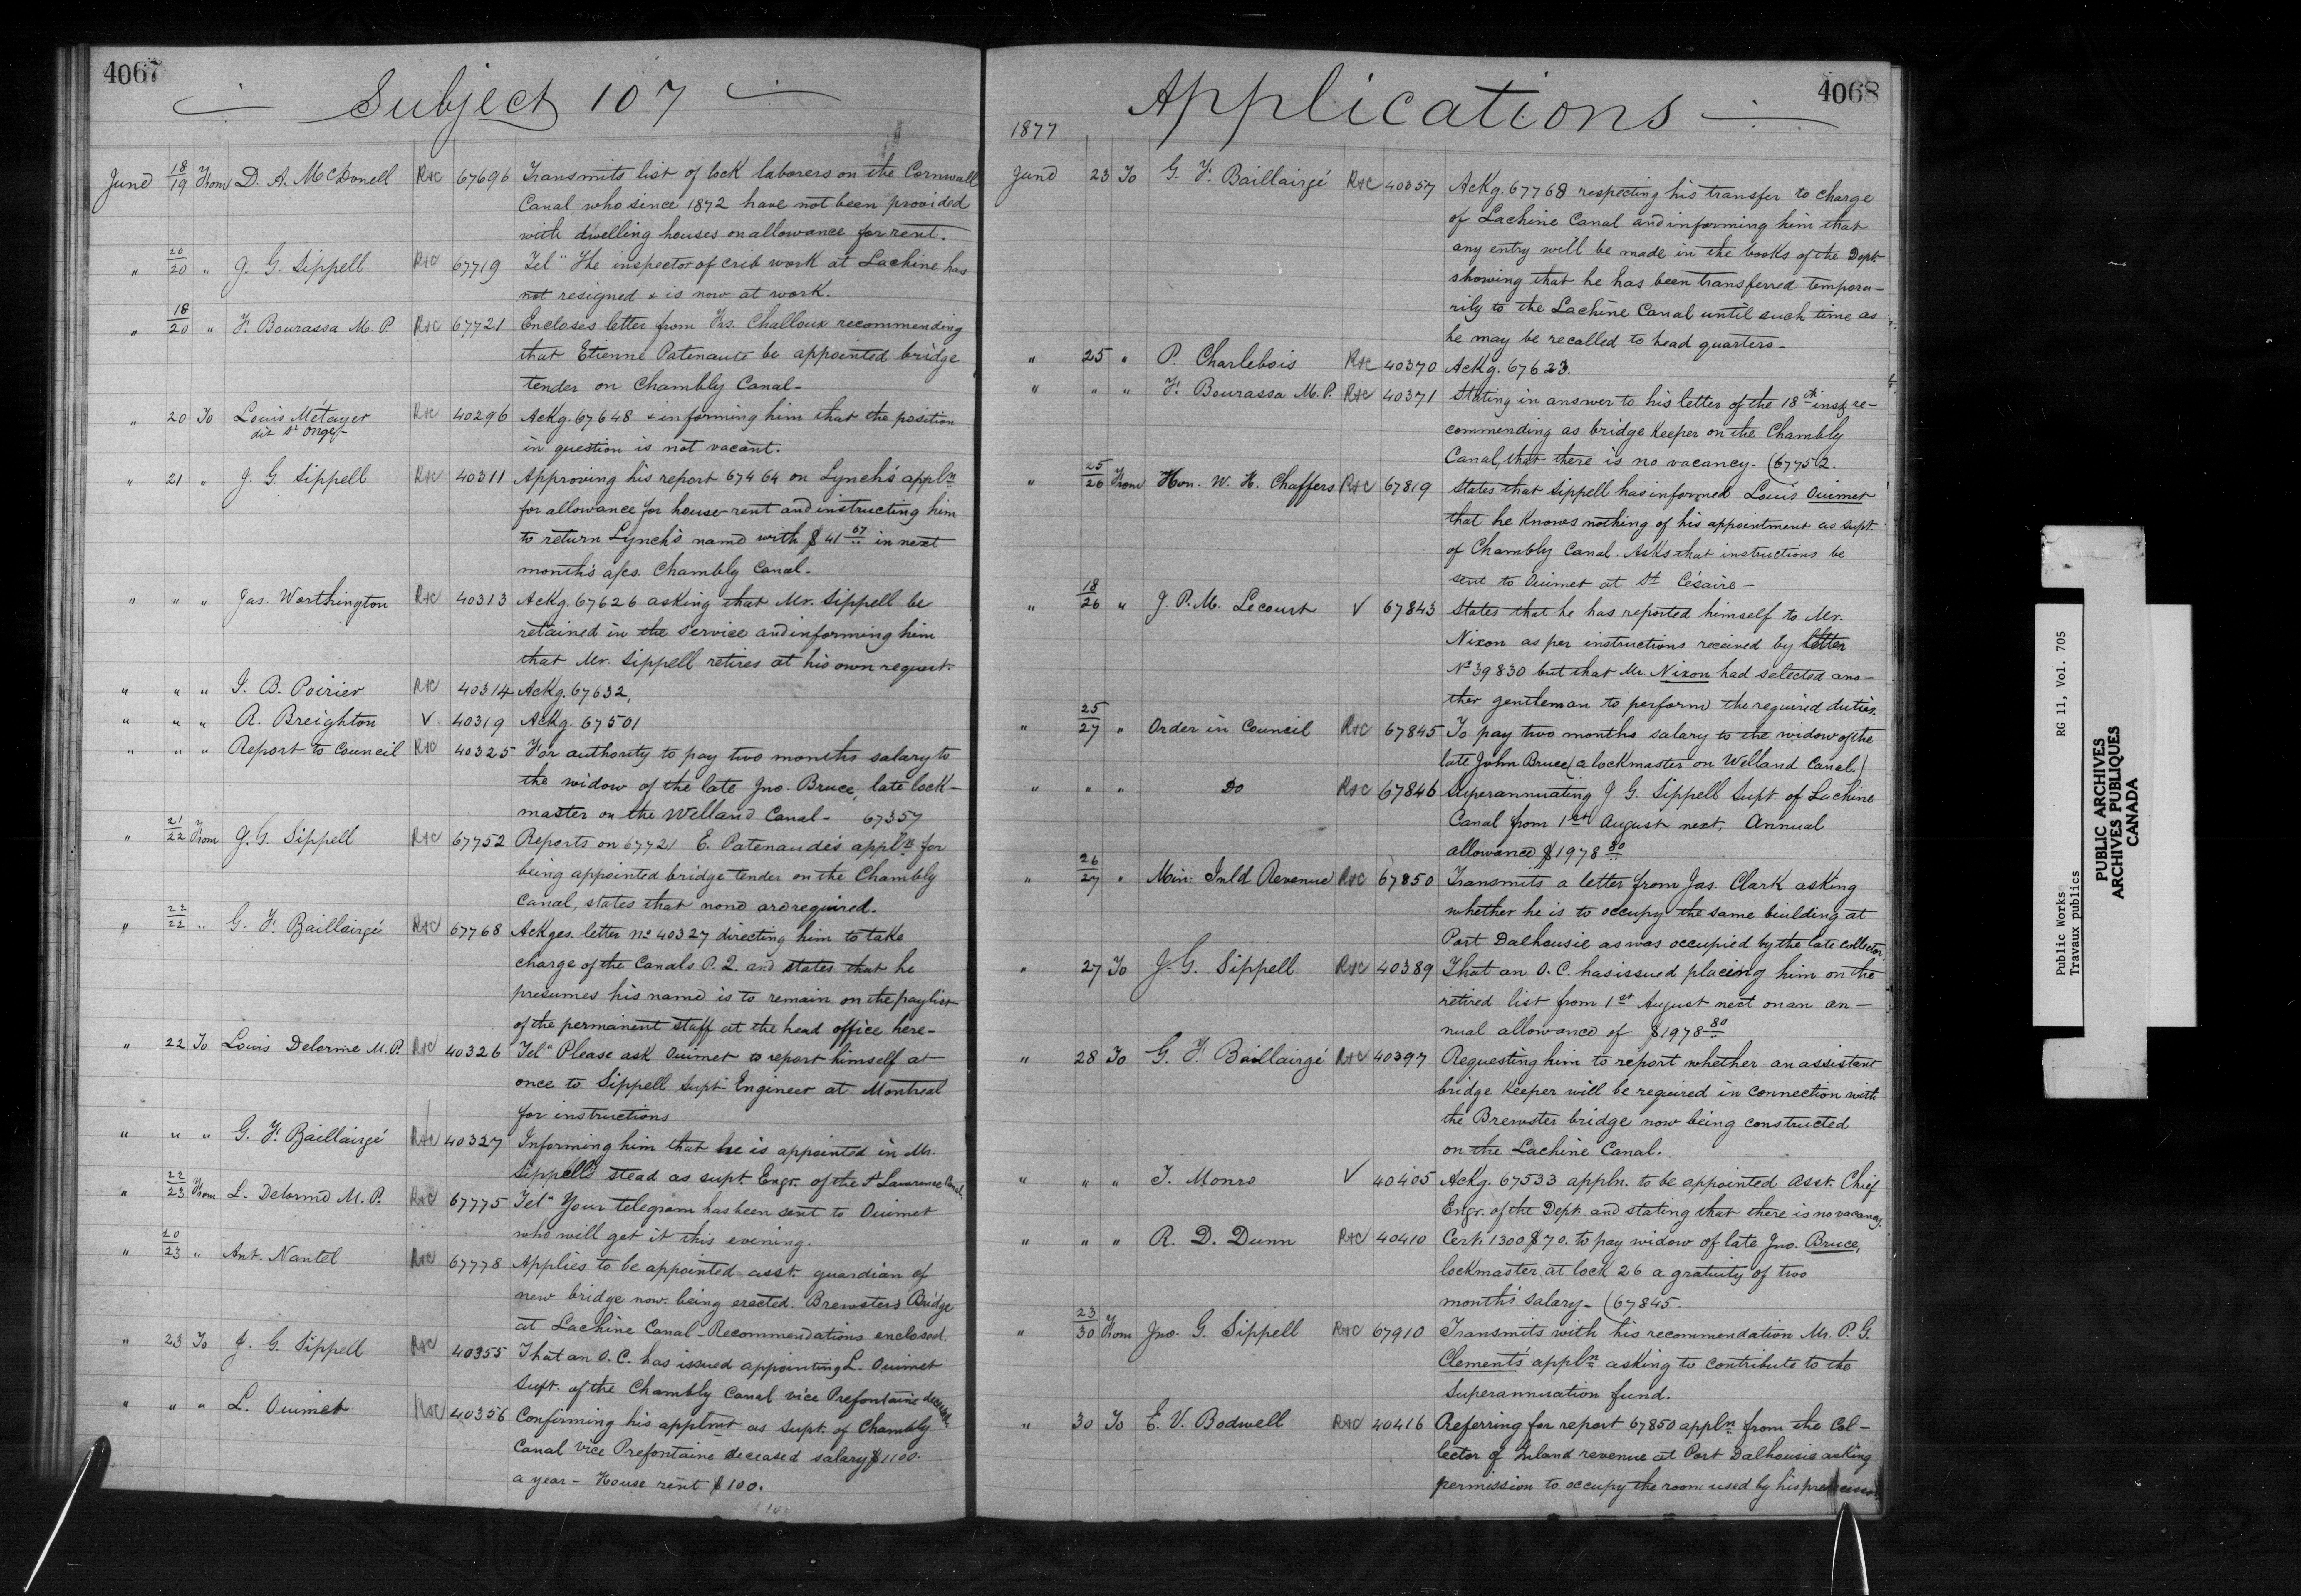 4067
Subject 107
June 18/19 From D. A. McDonell R&C 67696 Transmits list of lock laborers on the Cornwall
Canal who since 1872 have not been provided
with dwelling houses on allowance for rent.
" 20/20 " J. G. Sippell R&C 67719 Tel" The inspector of crib work at Lachine has
not resigned & is now at work.
" 18/20 " F. Bourassa M. P. R&C 67721 Encloses letter from Frs. Challoux recommending
that Etienne Patenaute be appointed bridge
tender on Chambly Canal-
" 20 To Louis Métayer R&C 40296 Ackg. 67648 & informing him that the position
dit St Onge-
in question is not vacant.
" 21 " J. G. Sippell R&C 40311 Approving his report 67464 on Lynch's appln
for allowance for house rent and instructing him
to return Lynch's name with $41 67 in next
month's a/cs. Chambly Canal-
" " " Jas. Worthington R&C 40313 Ackg. 67626 asking that Mr. Sippell be
retained in the service and informing him
that Mr. Sippell retires at his own request.
" " " J. B. Poirier R&C 40314 Ackg. 67632,
" " " R. Breighton V. 40319 Ackg. 67501
" " " Report to Council R&C 40325 For authority to pay two months salary to
the widow of the late Jno. Bruce, late lock-
master on the Welland Canal- 67357
" 21/22 From J. G. Sippell R&C 67752 Reports on 67721 E. Patenaude's appln for
being appointed bridge tender on the Chambly
Canal, states that none are required.
" 22/22 " G. F. Baillairgé R&C 67768 Ackges. letter no 40327 directing him to take
charge of the Canals P. Q. and states that he
presumes his name is to remain on the paylist
of the permanent staff at the head office here-
" 22 To Louis Delorme M. P. R&C 40326 Tel" Please ask Ouimet to report himself at
once to Sippell Supt Engineer at Montreal
for instructions
" " " G. F. Baillairgé R&C 40327 Informing him that he is appointed in Mr.
Sippell's stead as supt. Engr. of the St Lawrence Canal.
" 22/23 From L. Delorme M. P. R&C 67775 Tel" Your telegram has been sent to Ouimet
who will get it this evening.
" 20/23 " Ant. Nantel R&C 67778 Applies to be appointed asst. guardian of
new bridge now being erected. Brewsters Bridge
at Lachine Canal-Recommendations enclosed.
" 23 To J. G. Sippell R&C 40355 That an O. C. has issued appointing L. Ouimet
Supt. of the Chambly Canal vice Prefontaine deceased
" " " L. Ouimet R&C 40356 Confirming his applmt as Supt. of Chambly
Canal vice Prefontaine deceased salary $1100.
a year- House rent $100.
4068
Applications
1877
June 23 To G. F. Baillairgé R&C 40357 Ackg. 67768 respecting his transfer to charge
of Lachine Canal and informing him that
any entry will be made in the books of the Dept.
showing that he has been transferred tempora-
rily to the Lachine Canal until such time as
he may be recalled to head quarters-
" 25 " P. Charlebois R&C 40370 Ackg. 67623.
" " " F. Bourassa M. P. R&C 40371 Stating in answer to his letter of the 18th inst. re-
commending as bridge Keeper on the Chambly
Canal, that there is no vacancy. (67752.
" 25/26 From Hon. W. H. Chaffers R&C 67819 States that Sippell has informed Louis Ouimet
that he knows nothing of his appointment as supt.
of Chambly Canal. Asks that instructions be
sent to Ouimet at St Césaire-
" 18/26 " J. P. M. Lecourt V 67843 States that he has reported himself to Mr.
Nixon as per instructions received by letter
No 39830 but that Mr. Nixon had selected ano-
ther gentleman to perform the required duties.
" 25/27 " Order in Council R&C 67845 To pay two months salary to the widow of the
late John Bruce (a lockmaster on Welland Canal.)
" " " Do R&C 67846 Superannuating J. G. Sippell Supt. of Lachine
Canal from 1st August next, Annual
allowance $1978 80
" 26/27 " Min: Inld Revenue R&C 67850 Transmits a letter from Jas. Clark asking
whether he is to occupy the same building at
Port Dalhousie as was occupied by the late collector.
" 27 To J. G. Sippell R&C 40389 That an O. C. has issued placing him on the
retired list from 1st August next on an an-
nual allowance of $1978 80
" 28 To G. F. Baillairgé R&C 40397 Requesting him to report whether an assistant
bridge Keeper will be required in connection with
the Brewster bridge now being constructed
on the Lachine Canal.
" " " T. Monro V 40405 Ackg. 67533 appln. to be appointed Asst. Chief
Engr. of the Dept. and stating that there is no vacancy.
" " " R. D. Dunn R&C 40410 Cert. 1300 $70. to pay widow of late Jno. Bruce,
lockmaster at lock 26 a gratuity of two
month's salary- (67845.
" 23/30 From Jno. G. Sippell R&C 67910 Transmits with his recommendation Mr. P. G.
Clement's appln asking to contribute to the
Superannuation fund.
" 30 To E. V. Bodwell R&C 40416 Referring for report 67850 appln from the Col-
lector of Inland revenue at Port Dalhousie asking
permission to occupy the room used by his predecessor
Public Works RG 11, Vol. 705
Travaux publics
PUBLIC ARCHIVES
ARCHIVES PUBLIQUES
CANADA